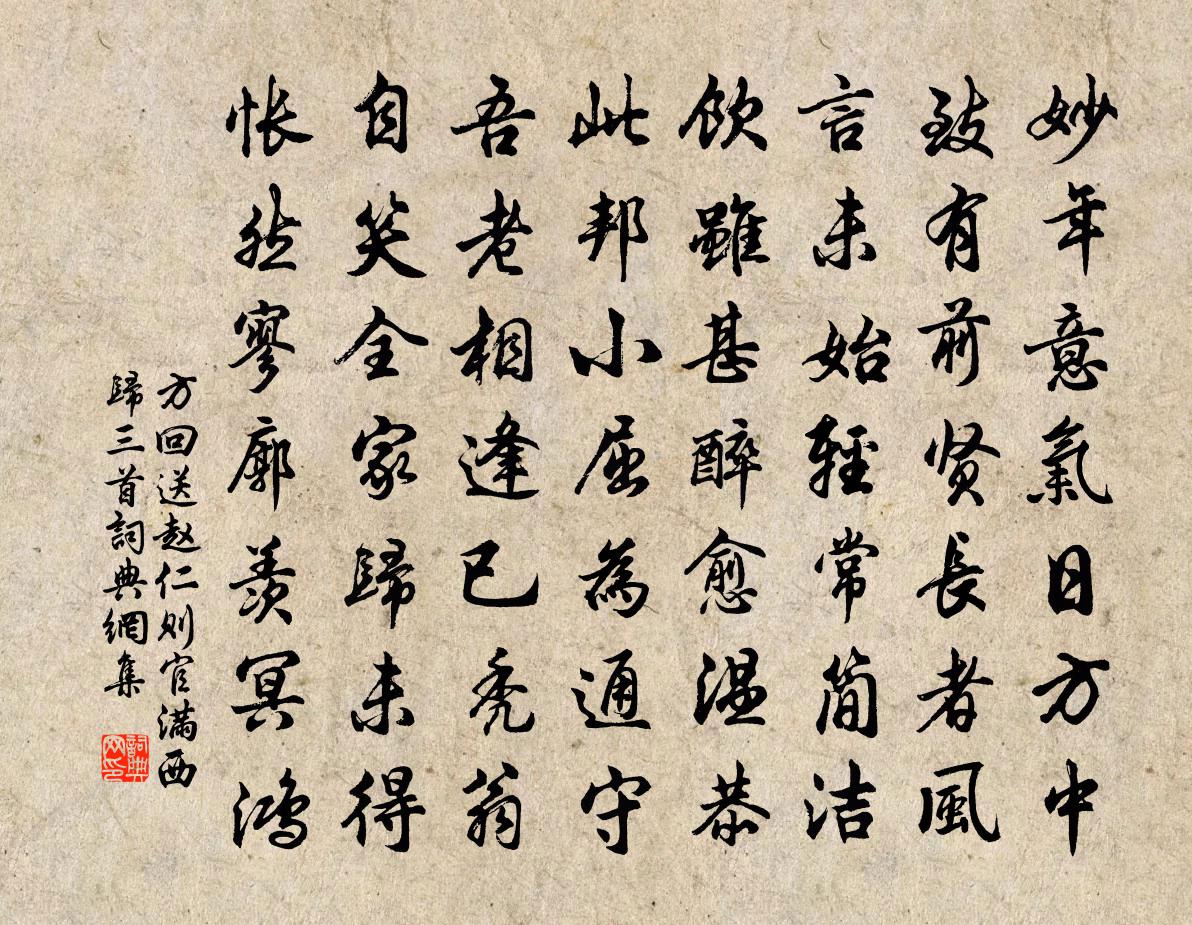 妙年意氣日方中
致有前贤長者風
言未始輕常简洁
飲雖甚醉愈温恭
此邦小屈為通守
吾老相逢已秃翁
自笑全家歸未得
悵然寥廓羨冥鴻
方回送赵仁则官滿西
歸三首詞典網集
詞典
网印